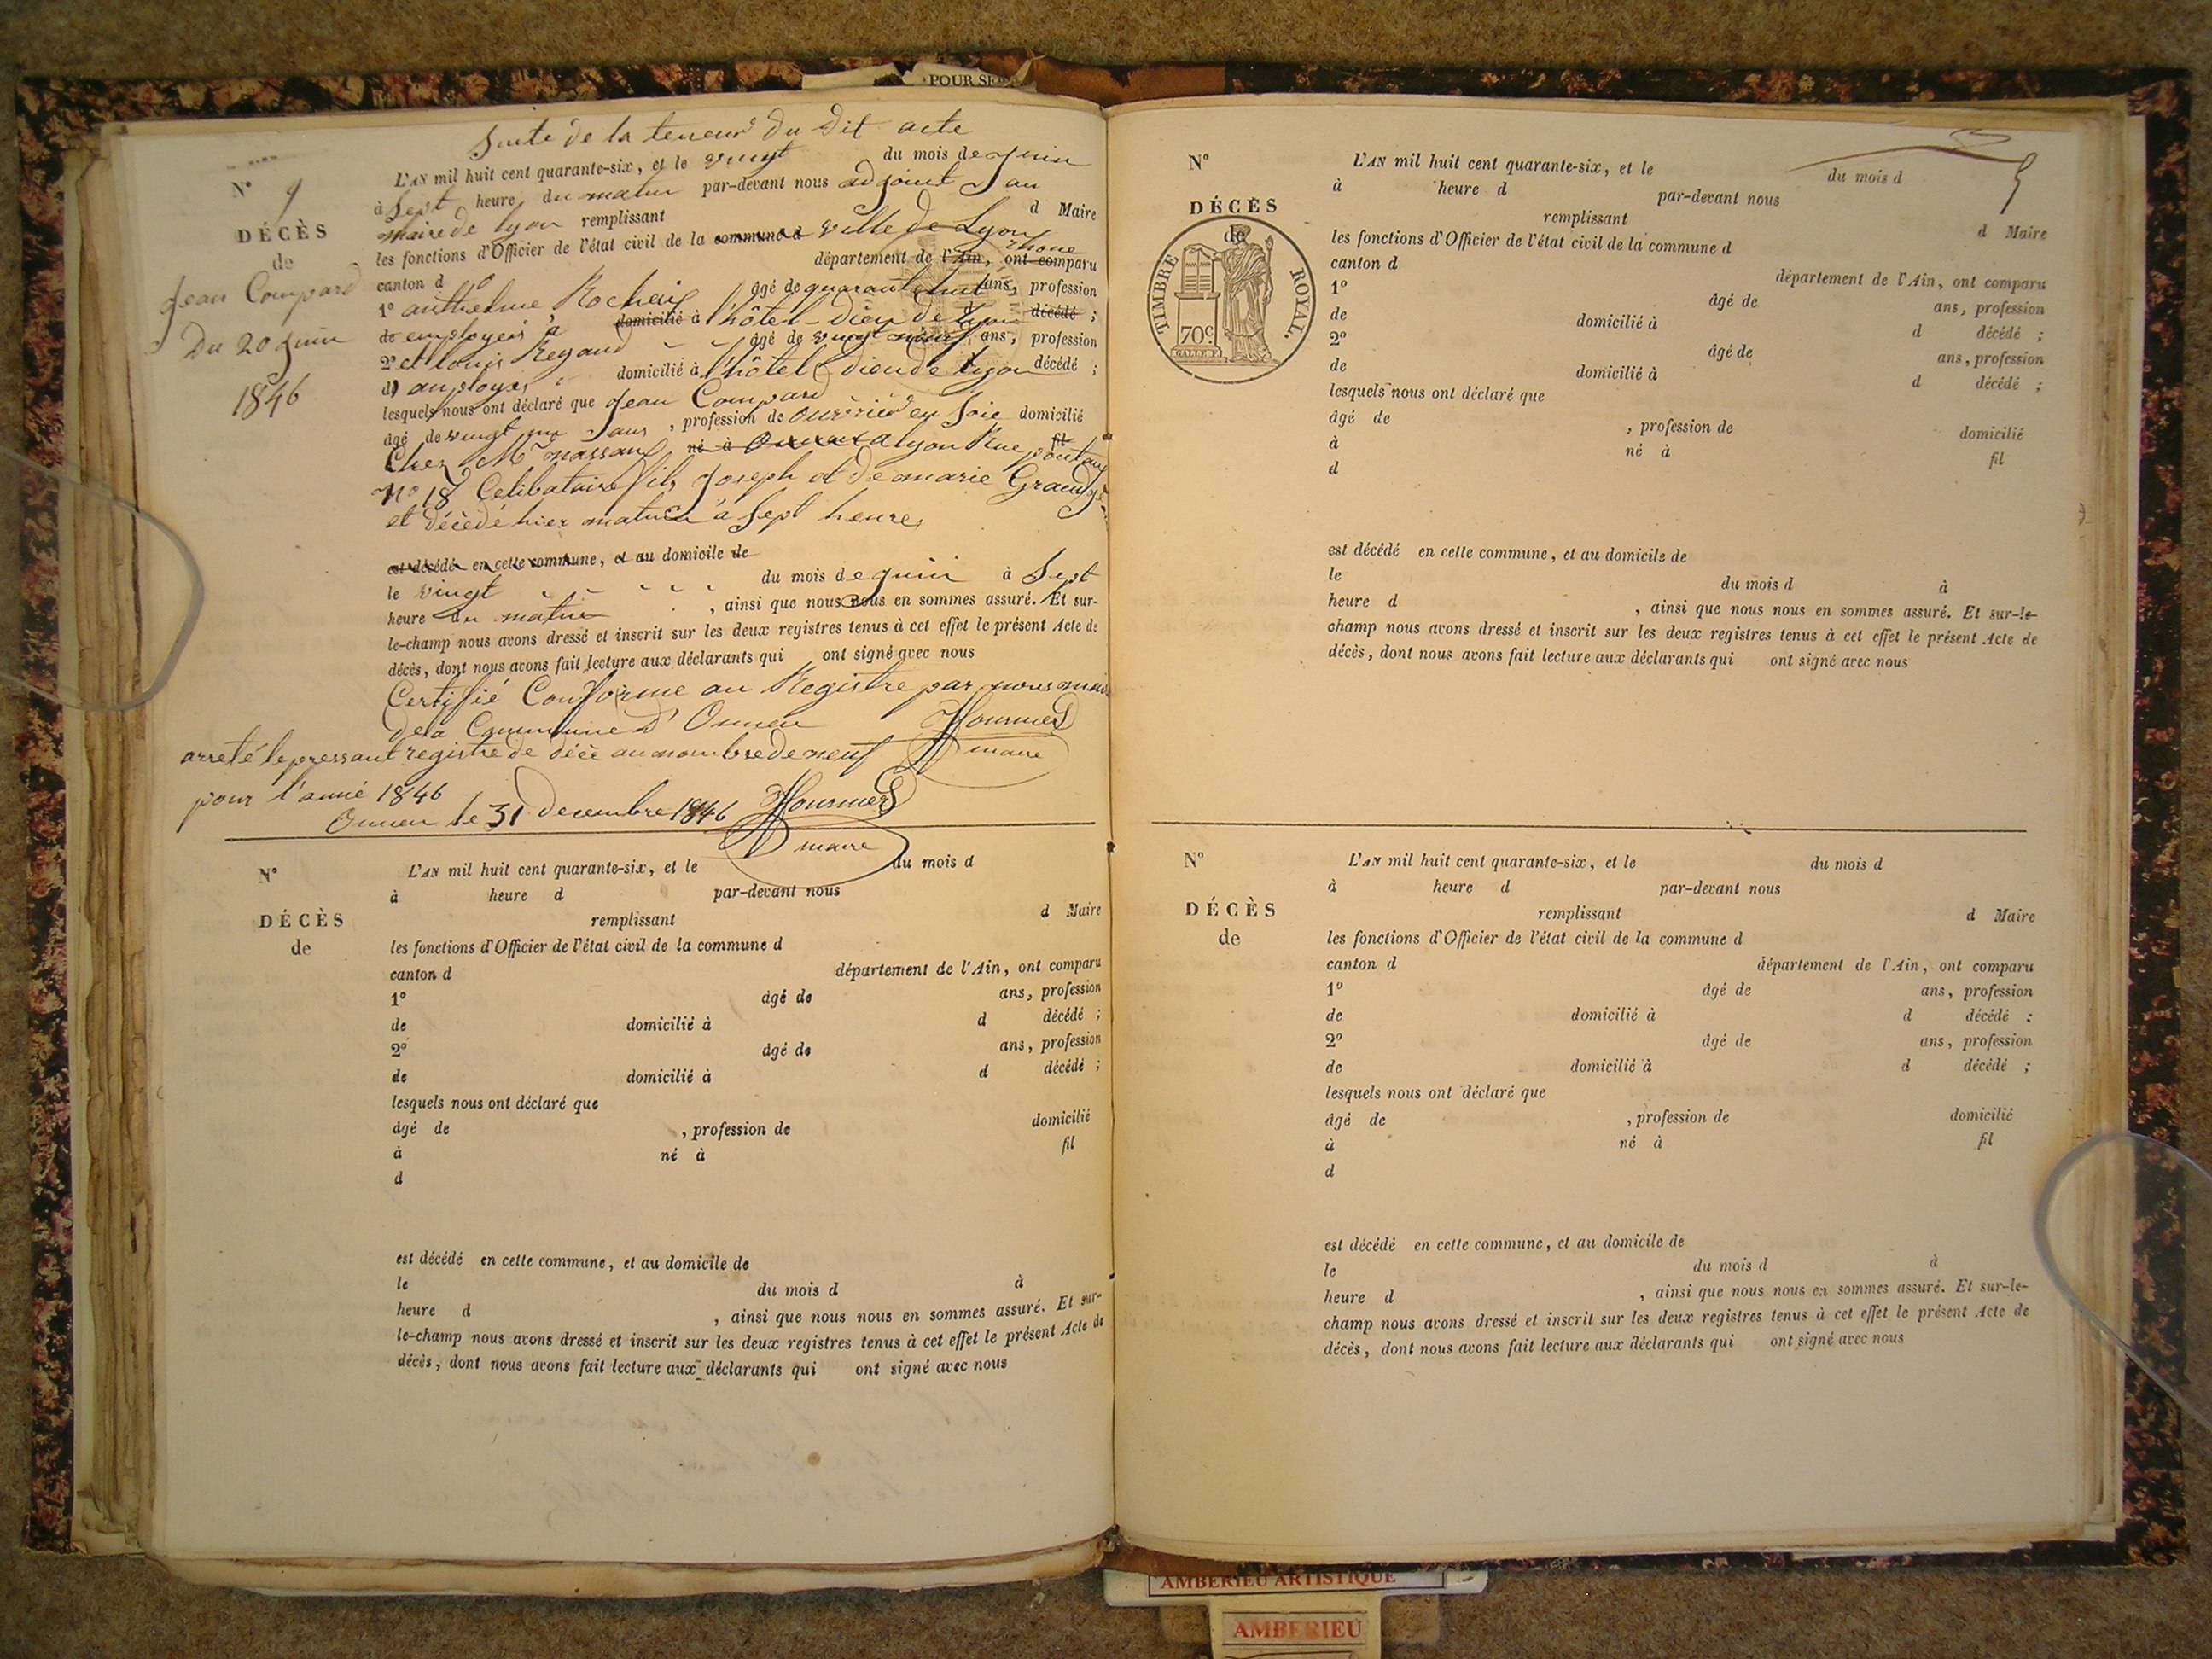 POUR SE
Suite de la teneur du dit acte
N° 9
DÉCÈS
de
Jean Compard
Du 20 juin
1846
L'AN mil huit cent quarante-six, et le vingt du mois de juin
à Sept heure du matin par-devant nous adjoint au
maire de lyon remplissant d Maire
les fonctions d'Officier de l'état civil de la commune d ville de Lyon
canton d département de l'Ain, Rhone ont comparu
1° anthelme Rochaix âgé de quarante huit ans, profession
de employeis à domicilié à l'hôtel-dieu de Lyon décédé ;
2° et louis Regaud âgé de vingt neuf ans, profession
d anployer domicilié à l'hôtel dieu de Lyon décédé ;
lesquels nous ont déclaré que Jean Compard
âgé de vingt un ans, profession de ouvrier en Soie domicilié
Chez Mr massant né à a lyon Rue fil
N° 18 Celibataire fils Joseph et de marie
et décédé hier matin à Sept heures
est décédé en cette commune, et au domicile de
le vingt du mois de juin à Sept
heure du matin, ainsi que nous nous en sommes assuré. Et sur-
le-champ nous avons dressé et inscrit sur les deux registres tenus à cet effet le présent Acte de
décès, dont nous avons fait lecture aux déclarants qui ont signé avec nous
Certifié Conforme au Registre par nous maire
de la Commune D'
maire
arreté le pressant registre de décè au nombre de neuf
pour l'année 1846
le 31 Decembre 1846
maire
N°
DÉCÈS
de
L'AN mil huit cent quarante-six, et le du mois d
à heure d par-devant nous
remplissant d Maire
les fonctions d'Officier de l'état civil de la commune d
canton d département de l'Ain, ont comparu
1° âgé de ans, profession
de domicilié à d décédé ;
2° âgé de ans, profession
de domicilié à d décédé ;
lesquels nous ont déclaré que
âgé de , profession de domicilié
à né à fil
d
est décédé en cette commune, et au domicile de
le du mois d à
heure d , ainsi que nous nous en sommes assuré. Et sur-
le-champ nous avons dressé et inscrit sur les deux registres tenus à cet effet le présent Acte de
décès, dont nous avons fait lecture aux déclarants qui ont signé avec nous
5
N°
DÉCÈS
de
TIMBRE ROYAL.
70c
L'AN mil huit cent quarante-six, et le du mois d
à heure d par-devant nous
remplissant d Maire
les fonctions d'Officier de l'état civil de la commune d
canton d département de l'Ain, ont comparu
1° âgé de ans, profession
de domicilié à d décédé ;
2° âgé de ans, profession
de domicilié à d décédé ;
lesquels nous ont déclaré que
âgé de , profession de domicilié
à né à fil
d
est décédé en cette commune, et au domicile de
le du mois d à
heure d , ainsi que nous nous en sommes assuré. Et sur-le-
champ nous avons dressé et inscrit sur les deux registres tenus à cet effet le présent Acte de
décès, dont nous avons fait lecture aux déclarants qui ont signé avec nous
N°
DÉCÈS
de
L'AN mil huit cent quarante-six, et le du mois d
à heure d par-devant nous
remplissant d Maire
les fonctions d'Officier de l'état civil de la commune d
canton d département de l'Ain, ont comparu
1° âgé de ans, profession
de domicilié à d décédé :
2° âgé de ans, profession
de domicilié à d décédé ;
lesquels nous ont déclaré que
âgé de , profession de domicilié
à né à fil
d
est décédé en cette commune, et au domicile de
le du mois d à
heure d , ainsi que nous nous en sommes assuré. Et sur-le-
champ nous avons dressé et inscrit sur les deux registres tenus à cet effet le présent Acte de
décès, dont nous avons fait lecture aux déclarants qui ont signé avec nous
AMBERIEU ARTISTIQUE
AMBERIEU